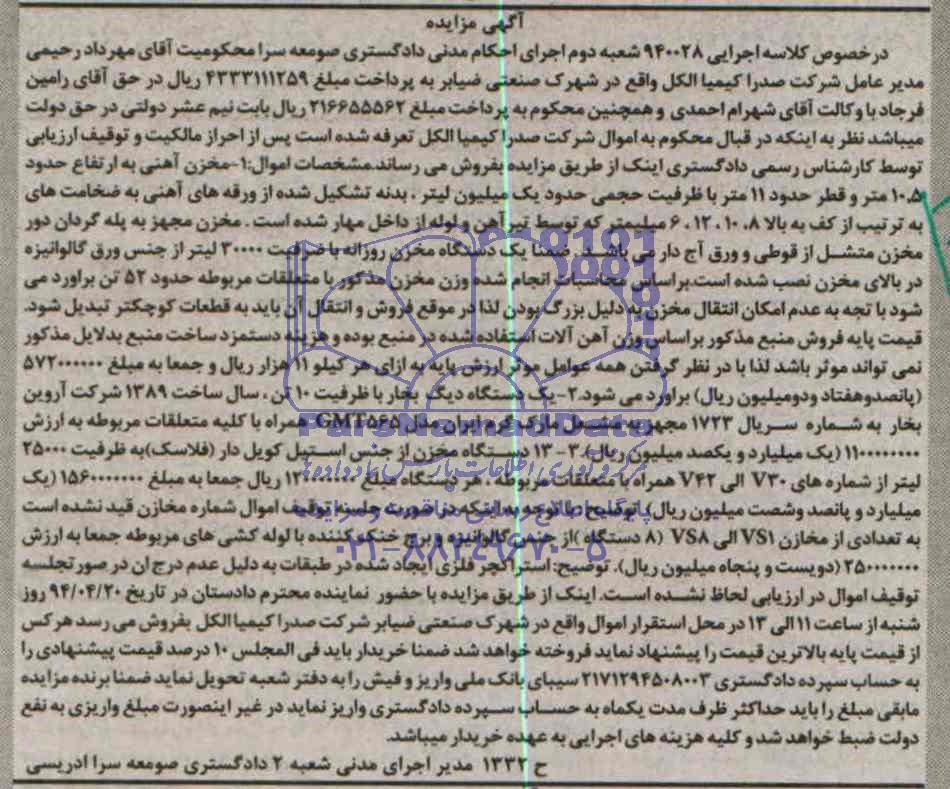 آگهی مزایده
درخصوص کلاسه اجرایی ۹۴۰۰۲۸ شعبه دوم اجرای احکام مدنی دادگستری صومعه سرا محکومیت آقای مهرداد رحیمی
مدیر عامل شرکت صدرا کیمیا الکل واقع در شهرک صنعتی ضیابر به پرداخت مبلغ ۴۳۳۳۱۱۱۲۵۹ ریال در حق آقای رامین
فرجاد با وکالت آقای شهرام احمدی و همچنین محکوم به پرداخت مبلغ ۲۱۶۶۵۵۵۶۲ ریال بابت نیم عشر دولتی در حق دولت
میباشد نظر به اینکه در قبال محکوم به اموال شرکت صدرا کیمیا الکل تعرفه شده است پس از احراز مالکیت و توقیف ارزیابی
توسط کارشناس رسمی دادگستری اینک از طریق مزایده بفروش می رساند.مشخصات اموال:۱-مخزن آهنی به ارتفاع حدود
۱۰.۵ متر و قطر حدود ۱۱ متر با ظرفیت حجمی حدود یک میلیون لیتر ، بدنه تشکیل شده از ورقه های آهنی به ضخامت های
به ترتیب از کف به بالا ۸، ۱۰، ۱۲، ۶ میلیمتر که توسط تیرآهن و لوله از داخل مهار شده است . مخزن مجهز به پله گردان دور
مخزن متشسل از قوطی و ورق آج دار می باشد. ضمنا یک دستگاه مخزن روزانه با ضرفیت ۳۰۰۰۰ لیتر از جنس ورق گالوانیزه
در بالای مخزن نصب شده است.براساس محاسبات انجام شده وزن مخزن مذکور با متعلقات مربوطه حدود ۵۲ تن براورد می
شود با تجه به عدم امکان انتقال مخزن به دلیل بزرگ بودن لذا در موقع فروش و انتقال آن باید به قطعات کوچکتر تبدیل شود.
قیمت پایه فروش منبع مذکور براساس وزن آهن آلات استفاده شده در منبع بوده و هزینه دستمزد ساخت منبع بدلایل مذکور
نمی تواند موثر باشد لذا با در نظر گرفتن همه عوامل موثر ارزش پایه به ازای هر کیلو ۱۱ هزار ریال و جمعا به مبلغ ۵۷۲۰۰۰۰۰۰
(پانصدوهفتاد ودومیلیون ریال) براورد می شود.۲-یک دستگاه دیک بخار با ظرفیت ۱۰ تن ، سال ساخت ۱۳۸۹ شرکت آروین
بخار به شماره سریال ۱۷۲۳ مجهز به مشعل مارک گرم ایران مدل GMT۵۶۵ همراه با کلیه متعلقات مربوطه به ارزش
۱۱۰۰۰۰۰۰۰۰ (یک میلیارد و یکصد میلیون ریال).۳- ۱۳ دستگاه مخزن از جنس استیل کویل دار (فلاسک)به ظرفیت ۲۵۰۰۰
لیتر از شماره های V۳۰ الی V۴۲ همراه با متعلقات مربوطه ، هر دستگاه مبلغ ۱۲۰۰۰۰۰۰۰ ریال جمعا به مبلغ ۱۵۶۰۰۰۰۰۰۰ (یک
میلیارد و پانصد وشصت میلیون ریال) توضیح: با توجه به اینکه در صورت جلسه توقیف اموال شماره مخازن قید نشده است
به تعدادی از مخازن VS۱ الی VS۸ (۸ دستگاه )از جنس گالوانیزه و برج خنک کننده با لوله کشی های مربوطه جمعا به ارزش
۲۵۰۰۰۰۰۰۰ (دویست و پنجاه میلیون ریال). توضیح: استراکچر فلزی ایجاد شده در طبقات به دلیل عدم درج ان در صور تجلسه
توقیف اموال در ارزیابی لحاظ نشده است. اینک از طریق مزایده با حضور نماینده محترم دادستان در تاریخ ۹۴/۰۴/۲۰ روز
شنبه از ساعت ۱۱ الی ۱۳ در محل استقرار اموال واقع در شهرک صنعتی ضیابر شرکت صدرا کیمیا الکل بفروش می رسد هرکس
از قیمت پایه بالاترین قیمت را پیشنهاد نماید فروخته خواهد شد ضمنا خریدار باید فی المجلس ۱۰ درصد قیمت پیشنهادی را
به حساب سپرده دادگستری ۲۱۷۱۲۹۴۵۰۸۰۰۳ سیبای بانک ملی واریز و فیش را به دفتر شعبه تحویل نماید ضمنا برنده مزایده
مابقی مبلغ را باید حداکثر ظرف مدت یکماه به حساب سپرده دادگستری واریز نماید در غیر اینصورت مبلغ واریزی به نفع
دولت ضبط خواهد شد و کلیه هزینه های اجرایی به عهده خریدار میباشد.
ح ۱۳۳۲ مدیر اجرای مدنی شعبه ۲ دادگستری صومعه سرا ادریسی
ParsNamadData
۰۲۱-۸۸۳۴۹۶۷۰-۵